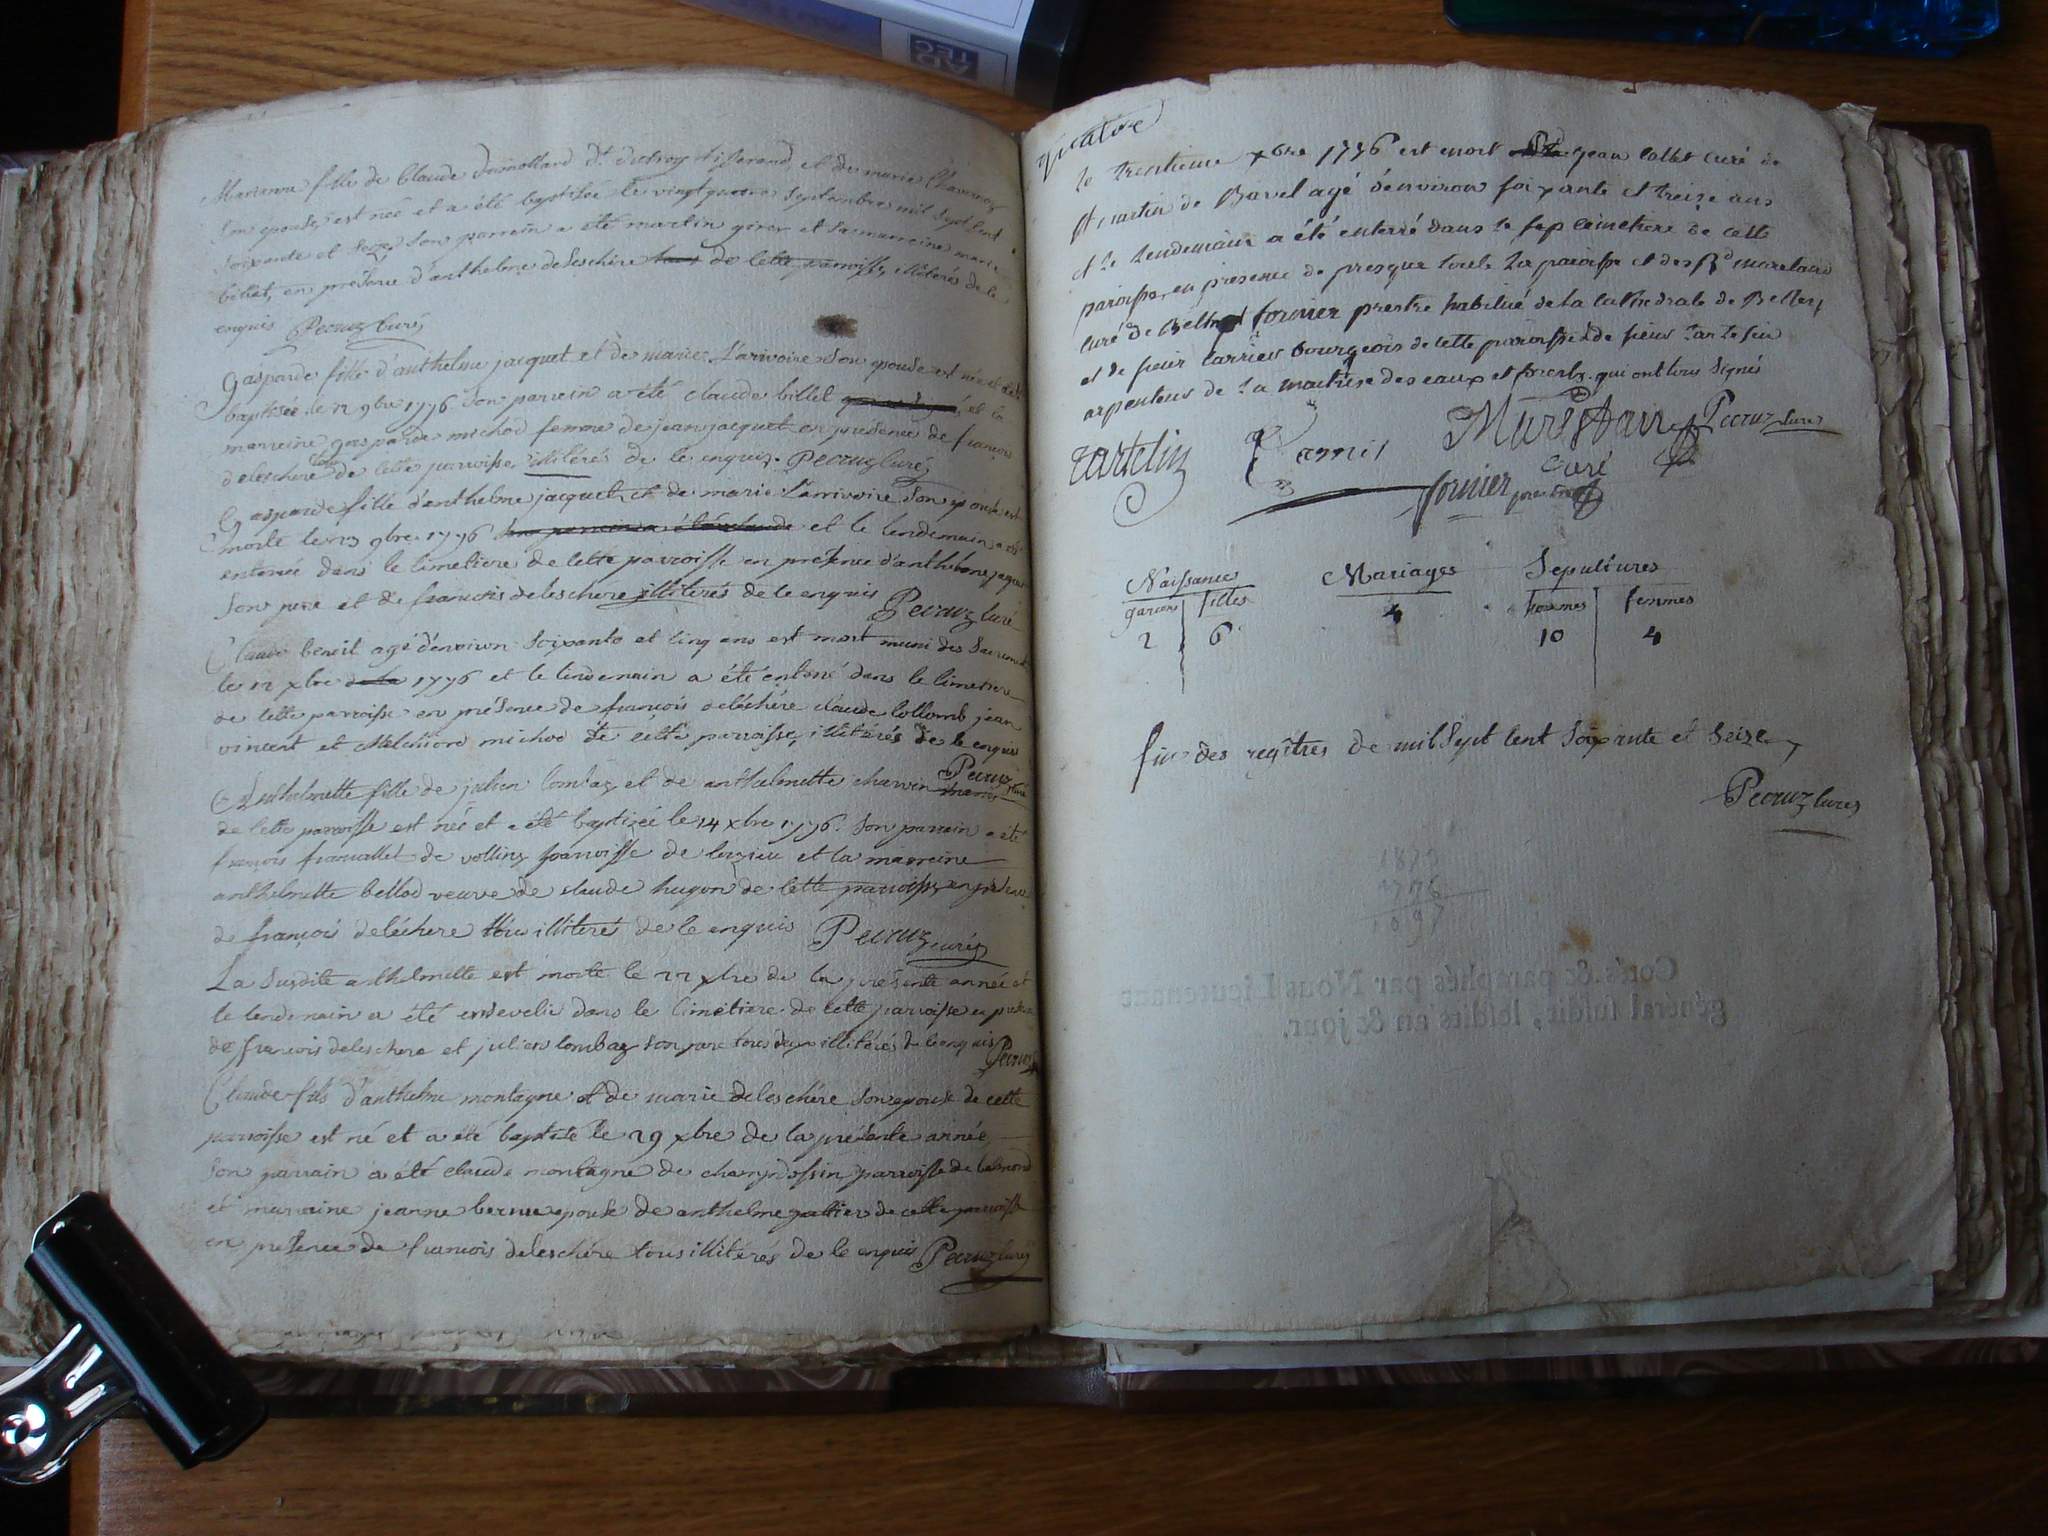 Marianne fille de Claude d.t dutroy tisserand, et de marie
son epouse, est née et a été baptisée le vingtquatre septembre mil sept cent
soixante et seize, son parrain a été martin girer et sa marreine marie
billet, en présence d'anthelme deleschère de cette parroisse, illiterés de le
enquis Pecruz curé
gasparde fille d'anthelme jacquet et de marie Larivoire son epouse est née et a été
baptisée le 12 9bre 1776 son parrein a été claude billet et la
marreine gasparde michod femme de jean jacquet en présence de françois
deleschere tous de cette parroisse, illitérés de le enquis. Pecruz curé
gasparde fille d'anthelme jacquet et de marie Larrivoire son epouse est
morte le 13 9bre 1776 son parrein a été claude et le lendemain a été
enterrée dans le cimetiere de cette parroisse en présence d'anthelme jacquet
son pere et de francois deleschere illiterés de le enquis Pecruz curé
Claude benoit agé d'environ soixante et cinq ans est mort muni des sacrements
le 12 xbre 1776 et le lendemain a été enterré dans le cimetiere
de cette parroisse en présence de françois deléchére claude collomb jean
vincent et Melchiord michod de cette parroisse, illitérés de le enquis
Pecruz curé
Anthelmette fille de julien lombaz et de anthelmette charvin
de cette parroisse est née et a été baptisée le 14 xbre 1776. son parrain a été
françois francallet de volliens parroisse de et la marreine
anthelmette bellod veuve de claude hugon de cette parroisse, en présence
de françois deléchere tous illiterés de le enquis Pecruz curé
La susdite anthelmette est morte le 22 xbre de la présente année et
le lendemain a été ensevelie dans le cimetiere de cette parroisse en présence
de francois deleschere et julien lombaz son pere tous deux illitérés de le enquis Pecruz
Claude fils d'anthelme montagne et de marie deleschére son epouse de cette
parroisse est né et a été baptisé le 29 xbre de la présente année
son parrain a été claude montagne de champdossin parroisse de belmond
et marraine jeanne bernie epouse de anthelme gallier de cette parroisse
en présence de francois deleschére tous illitérés de le enquis Pecruz curé
le trentieme xbre 1776 est mort jean callet curé de
St martin de Bavel agé d'environ soixante et treize ans
et le lendemain a été enterré dans le cimetiere de cette
paroisse, en presence de presque toute la paroisse et des Rd marestand
curé de fornier prestre habitué de la cathedrale de Belley
et de sieur Carrier bourgeois de cette paroisse & de sieur tartelin
arpenteur de la maitrise des eaux et forests. qui ont tous signés
tartelin Pecruz curé
curé
fornier prestre
Naissances Mariages Sepultures
garcons filles 4 hommes femmes
2 6 10 4
fin des regîtres de mil sept cent soixante et seize
Pecruz curé
1776
Cotés & paraphés par Nous Lieutenant
général susdit, lesdits an & jour.